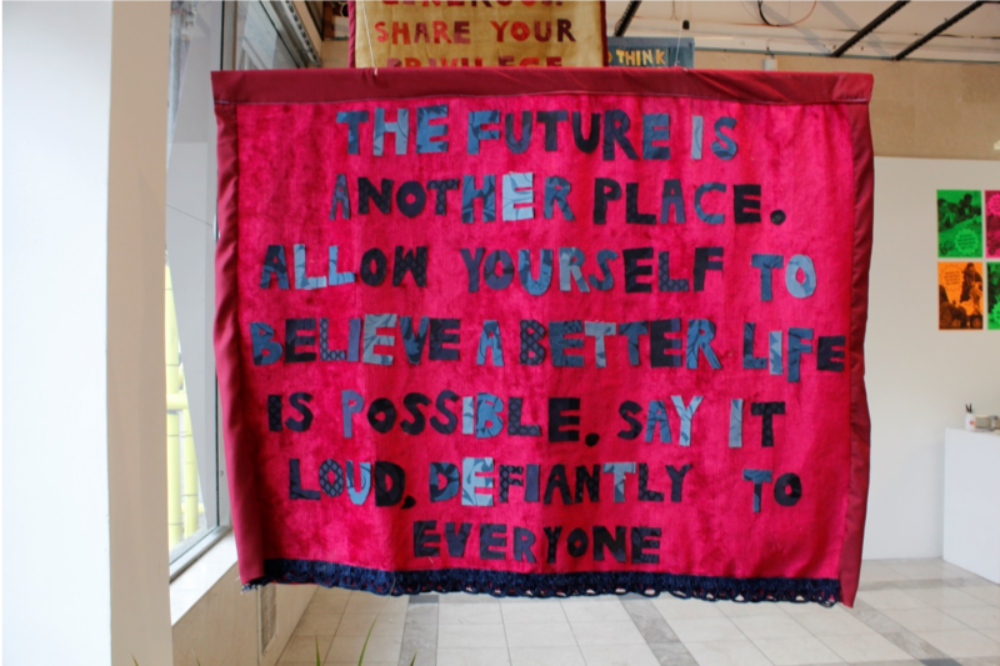 SHARE YOUR
PRIVILEGE
THINK
THE FUTURE IS
ANOTHER PLACE.
ALLOW YOURSELF TO
BELIEVE A BETTER LIFE
IS POSSIBLE. SAY IT
LOUD, DEFIANTLY TO
EVERYONE